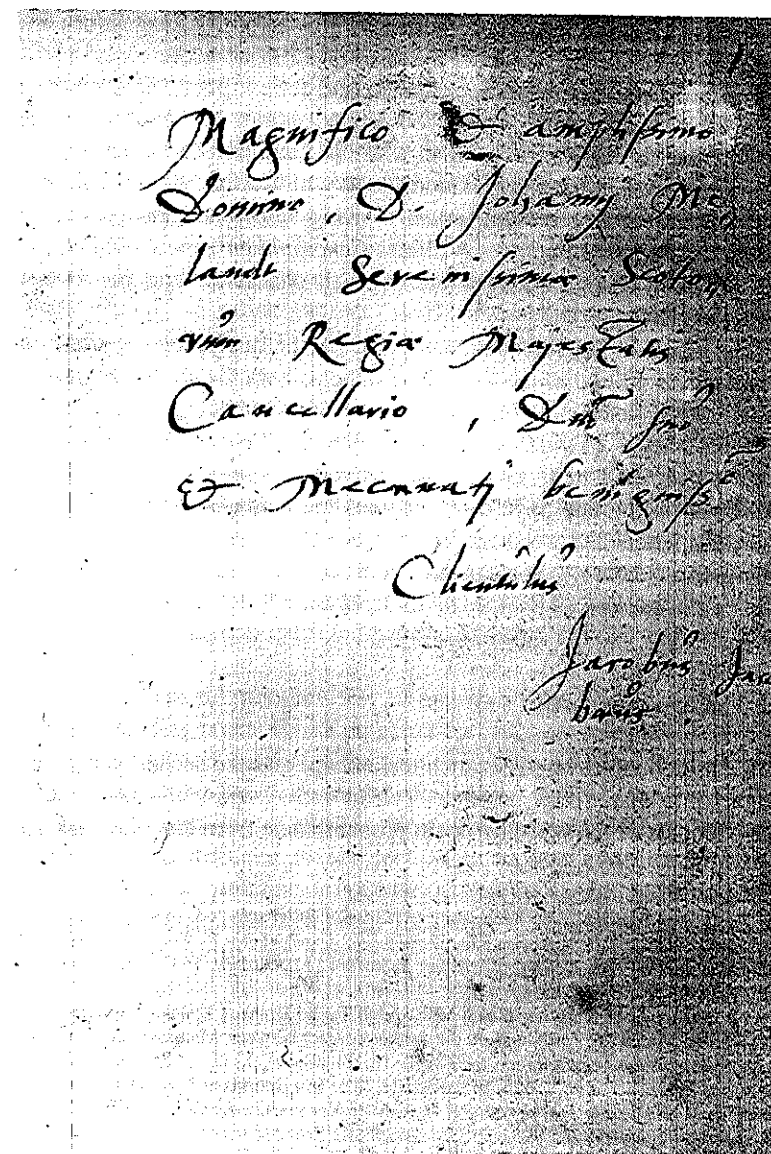 1
Magnifico & amplissimo
Domino, D. Johannj Me,
landt Serenissimæ Scoto,
rum Regiæ Majestatis
Cancellario, Dn̄o suo
& Mecœnatj benigniss.
Clientulus
Jacobus Jaco
bæus.